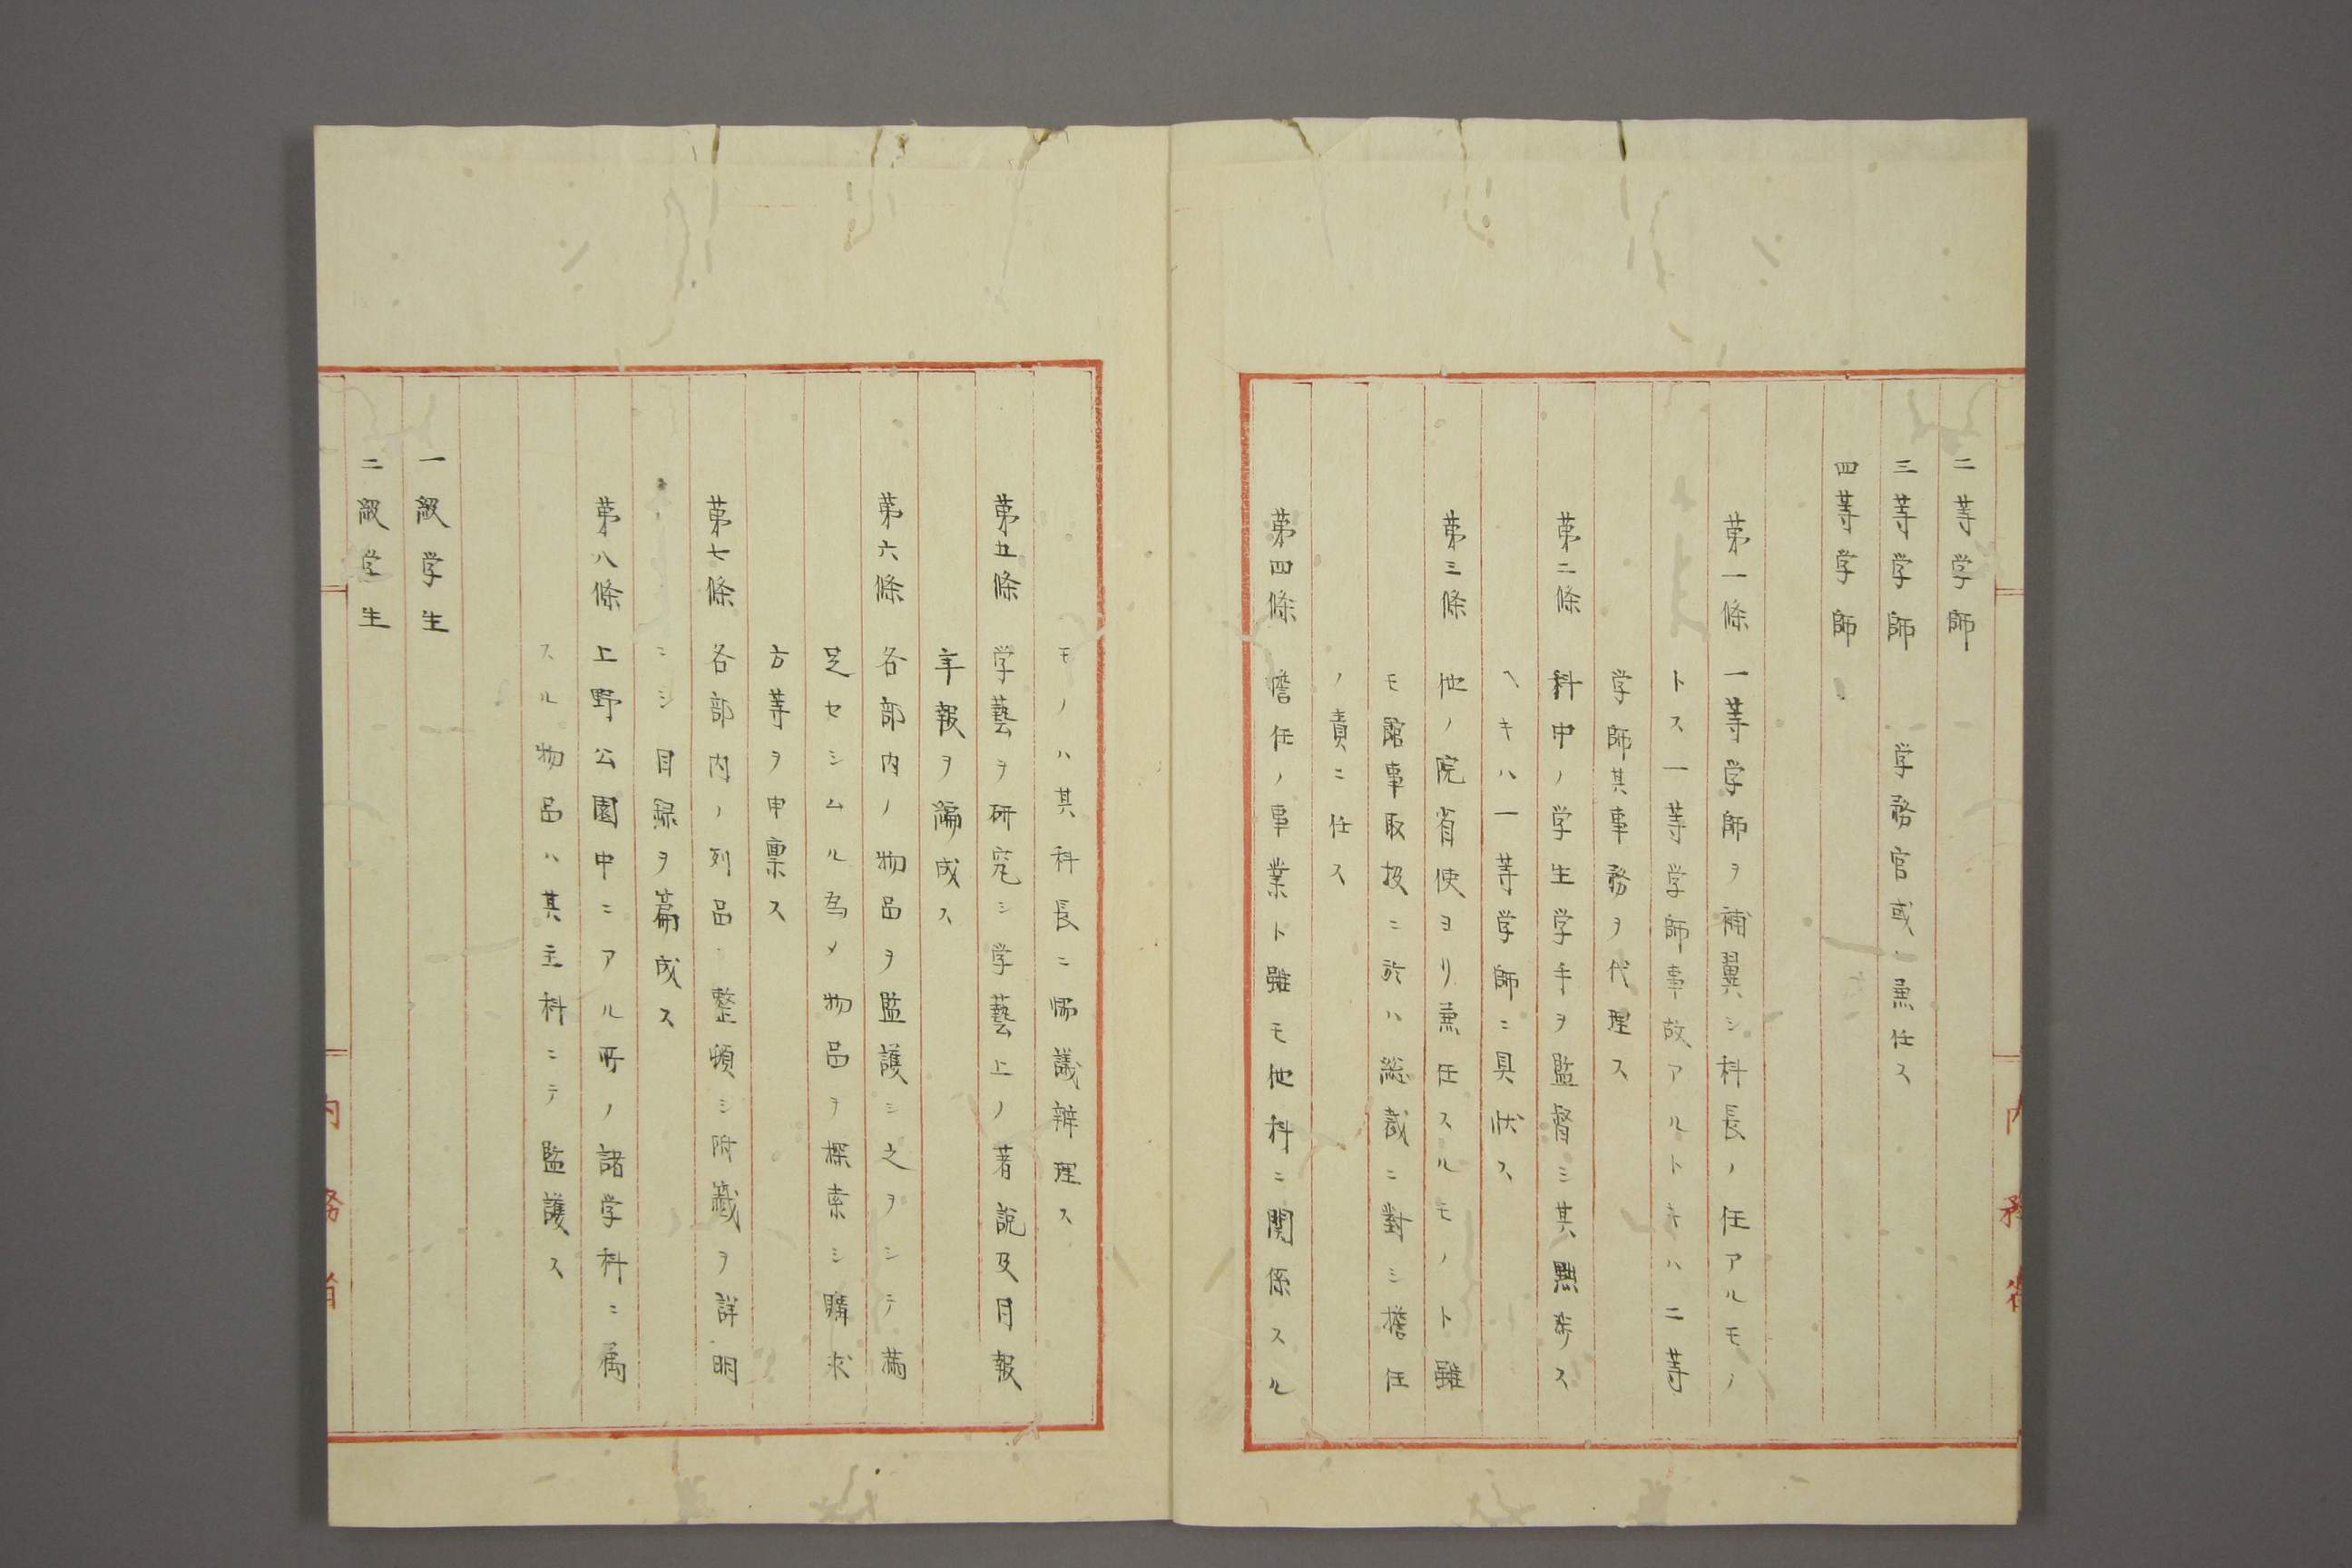 二等学師
三等学師　学務官或ハ兼任ス
四等学師
第一條　一等学師ヲ補翼シ科長ノ任アルモノ
トス一等学師事故アルトキハ二等
学師其事務ヲ代理ス
第二條　科中ノ学生学手ヲ監督シ其黜陟ス
ヘキハ一等学師ニ具状ス
第三條　他ノ院省使ヨリ兼任スルモノト雖
モ館事取扱ニ於ハ総裁ニ對シ擔任
ノ責ニ任ス
第四條　擔任ノ事業ト雖モ他科ニ関係スル
モノハ其科長ニ協議辨理ス
第五條　学藝ヲ研究シ学藝上ノ著説及月報
年報ヲ編成ス
第六條　各部内ノ物品ヲ監護シ之ヲシテ満
足セシムル為メ物品ヲ探索シ購求
方等ヲ申稟ス
第七條　各部内ノ列品ヲ整頓シ附籤ヲ詳明
ニシ目録ヲ篇成ス
第八條　上野公園中ニアル所ノ諸学科ニ属
スル物品ハ其主科ニテ監護ス
一級学生
二級学生
内務省